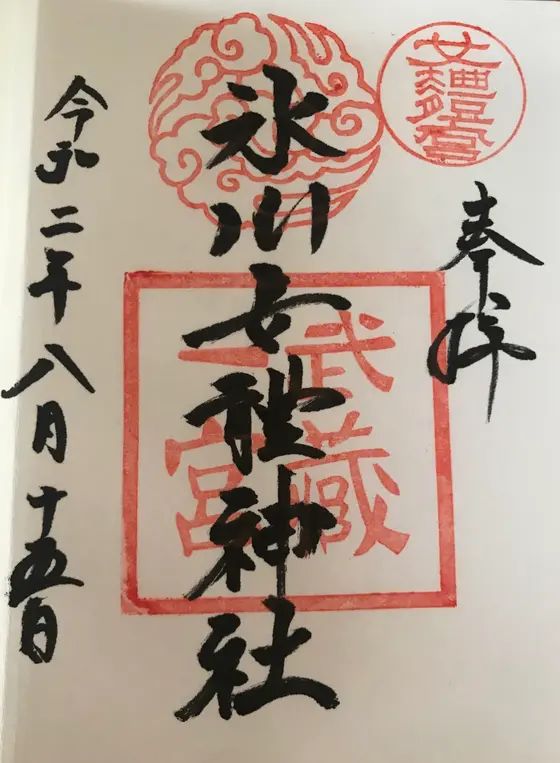 奉拝
氷川女體神社
武蔵
一宮
令和二年八月十五日